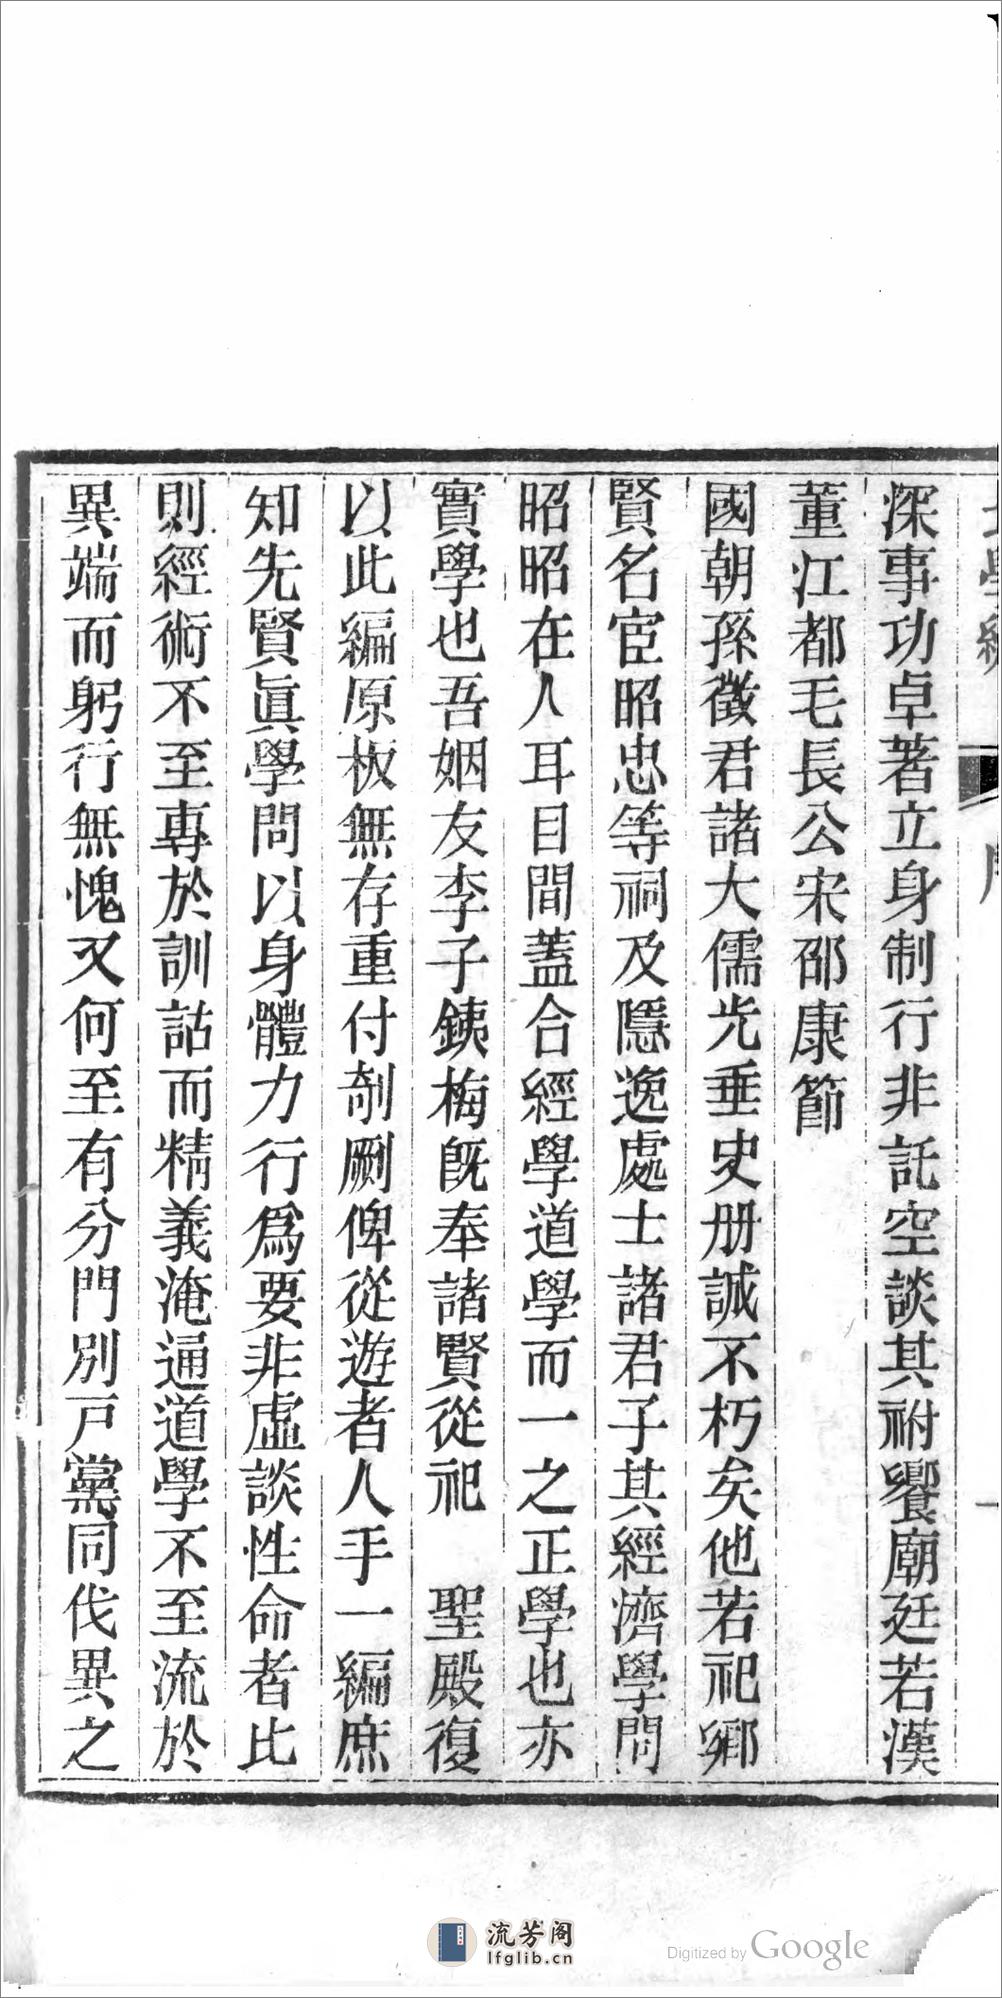 深事功卓著立身制行非託空談其祔饗廟廷若漢
董江都毛長公宋邵康節
國朝孫徵君諸大儒光垂史册誠不朽矣他若祀鄉
賢名宦昭忠等祠及隱逸處士諸君子其經濟學問
昭昭在人耳目間蓋合經學道學而一之正學也亦
實學也吾姻友李子銕梅旣奉諸賢從祀　聖殿復
以此編原板無存重付剞劂俾從遊者人手一編庶
知先賢眞學問以身體力行爲要非虛談性命者比
則經術不至專於訓詁而精義淹通道學不至流於
異端而躬行無愧又何至有分門別戸黨同伐異之
流芳阁
lfglib.cn
Digitized by Google